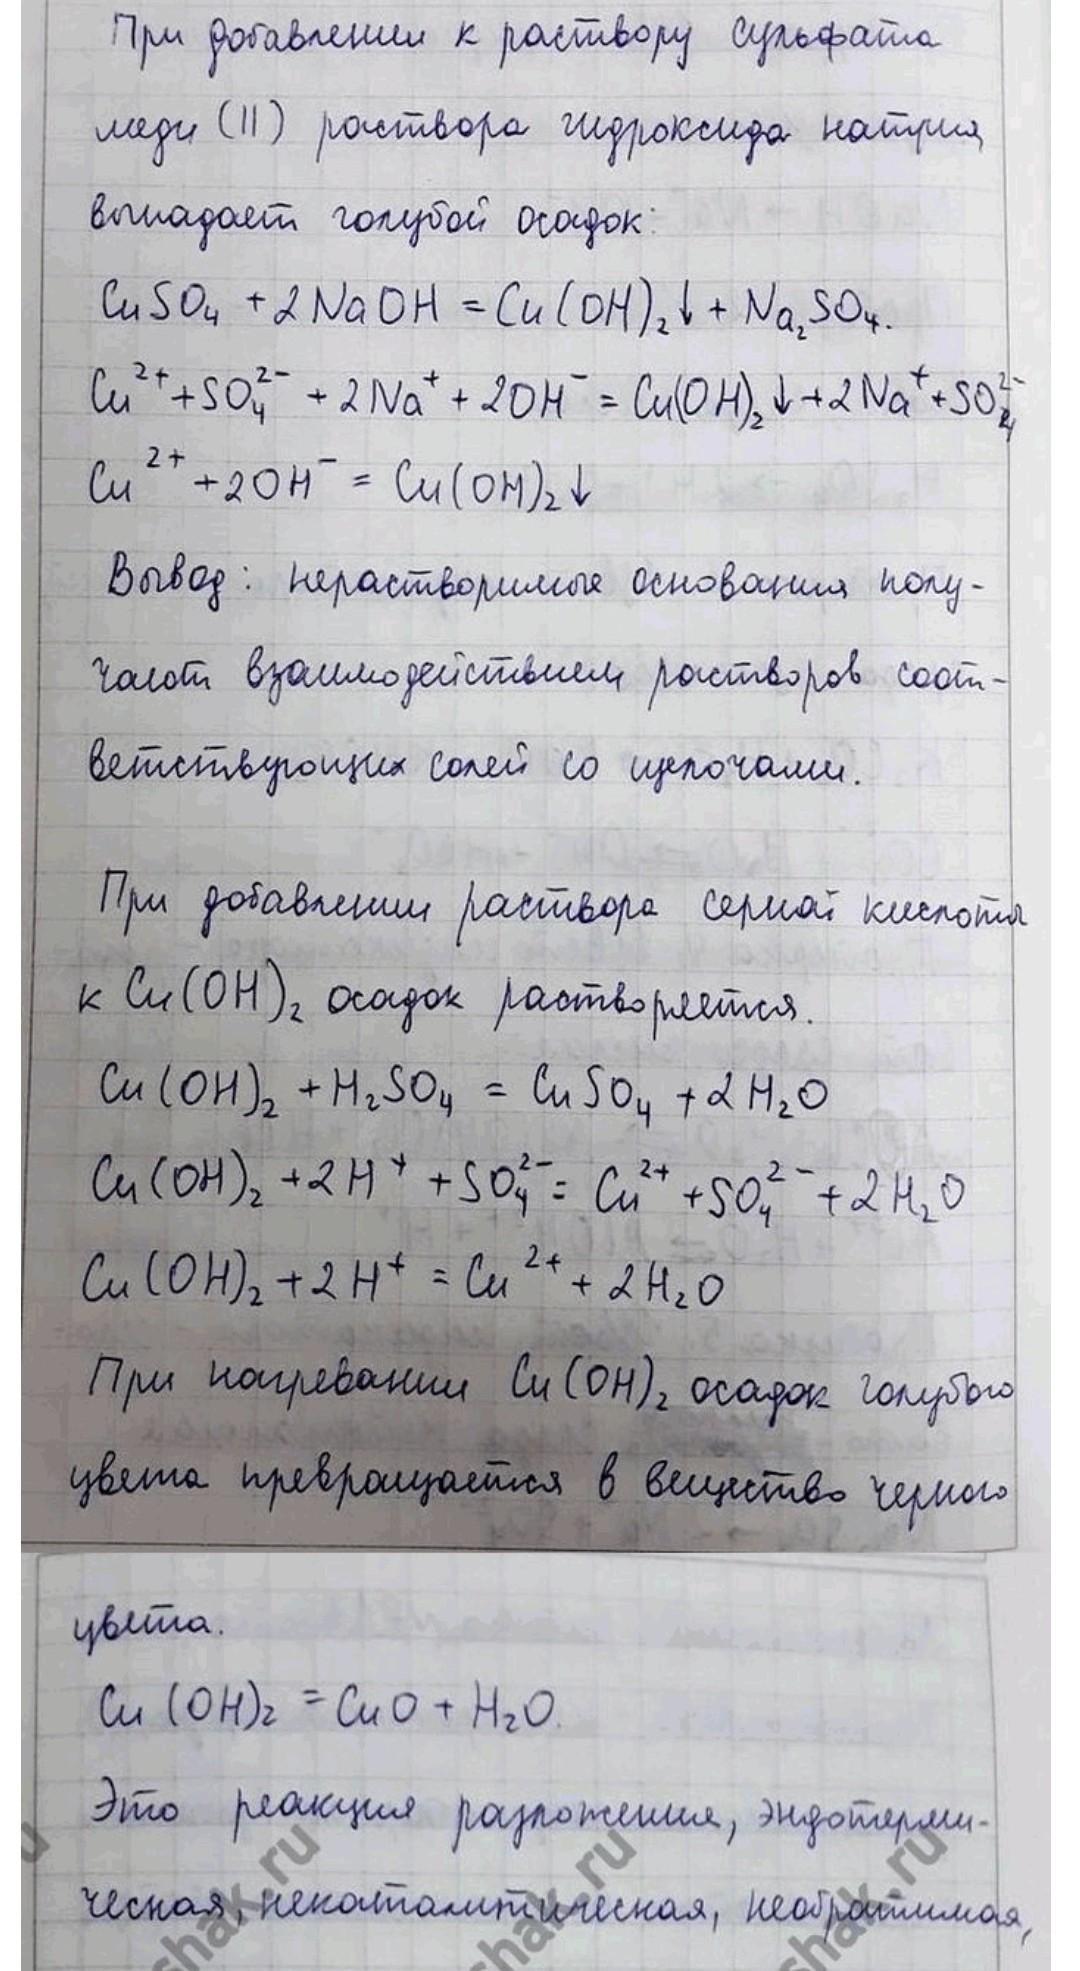 При добавлении к раствору сульфата
меди (II) раствора гидроксида натрия
выпадает голубой осадок:
CuSO₄ + 2NaOH = Cu(OH)₂↓ + Na₂SO₄.
Cu²⁺ + SO₄²⁻ + 2Na⁺ + 2OH⁻ = Cu(OH)₂↓ + 2Na⁺ + SO₄²⁻
Cu²⁺ + 2OH⁻ = Cu(OH)₂↓
Вывод: нерастворимые основания полу-
чают взаимодействием растворов соот-
ветствующих солей со щелочами.
При добавлении раствора серной кислоты
к Cu(OH)₂ осадок растворяется.
Cu(OH)₂ + H₂SO₄ = CuSO₄ + 2H₂O
Cu(OH)₂ + 2H⁺ + SO₄²⁻ = Cu²⁺ + SO₄²⁻ + 2H₂O
Cu(OH)₂ + 2H⁺ = Cu²⁺ + 2H₂O
При нагревании Cu(OH)₂ осадок голубого
цвета превращается в вещество черного
цвета.
Cu(OH)₂ = CuO + H₂O.
Это реакция разложения, эндотерми-
ческая, некаталитическая, необратимая,
shak.ru
shak.ru
shak.ru